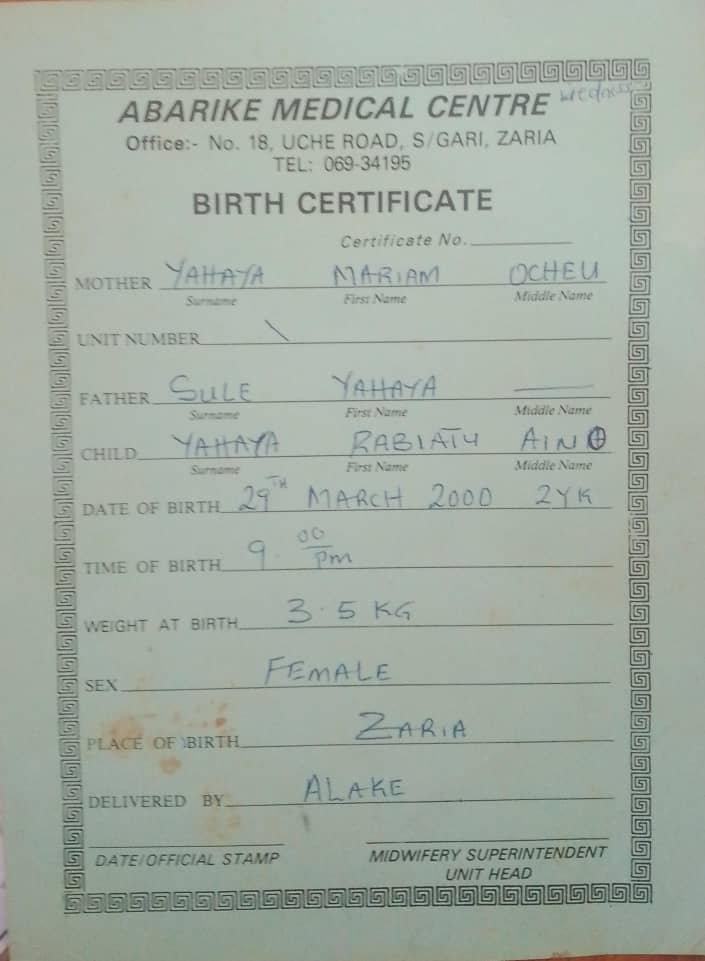 wednes
ABARIKE MEDICAL CENTRE
Office:- No. 18, UCHE ROAD, S/GARI, ZARIA
TEL: 069-34195
BIRTH CERTIFICATE
Certificate No.
MOTHER YAHAYA MARIAM OCHEU
Surname First Name Middle Name
UNIT NUMBER \
FATHER SULE YAHAYA —
Surname First Name Middle Name
CHILD YAHAYA RABIATU AINO
Surname First Name Middle Name
DATE OF BIRTH 29TH MARCH 2000 2YK
TIME OF BIRTH 9.00 pm
WEIGHT AT BIRTH 3.5 KG
SEX FEMALE
PLACE OF BIRTH ZARIA
DELIVERED BY ALAKE
DATE/OFFICIAL STAMP MIDWIFERY SUPERINTENDENT
UNIT HEAD